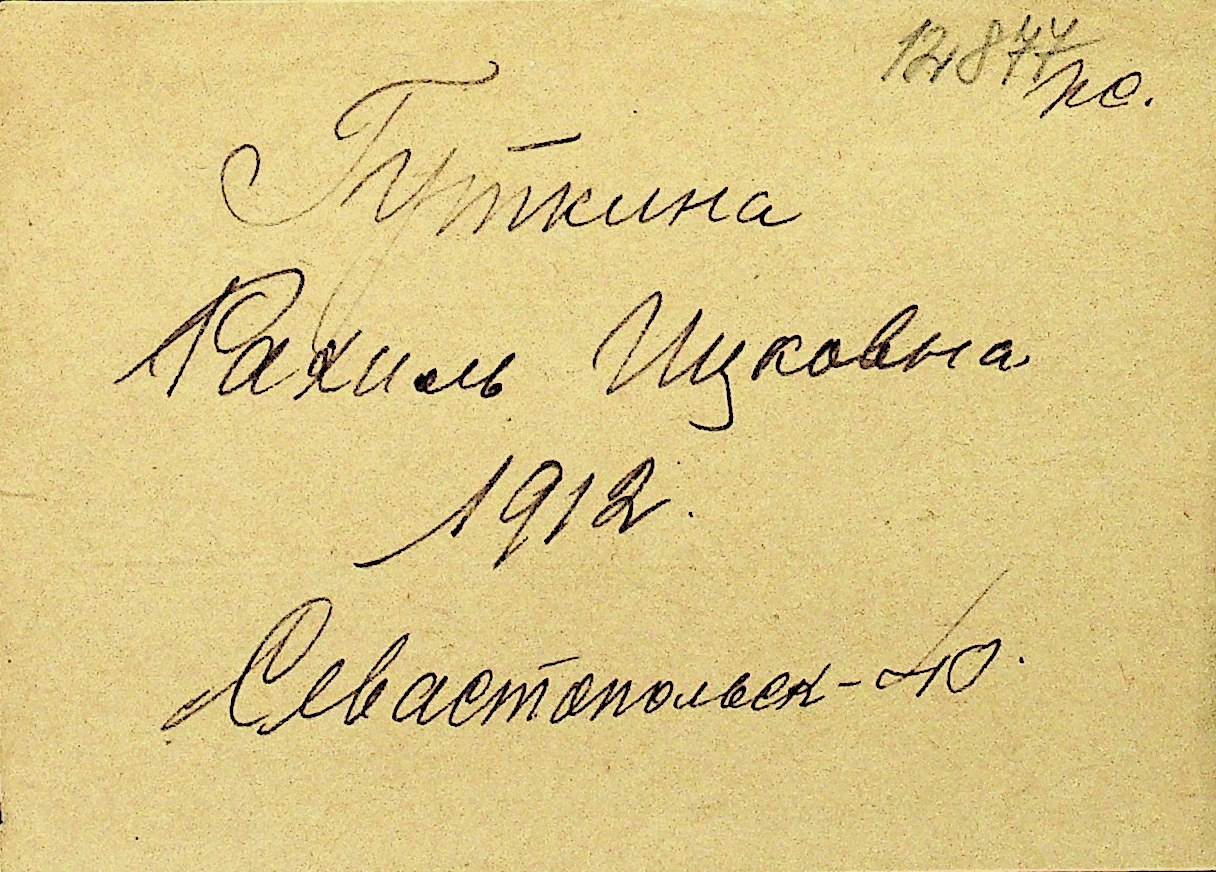 12877 пс.
Гуткина
Рахиль Ицковна
1912.
Севастопольск-40.